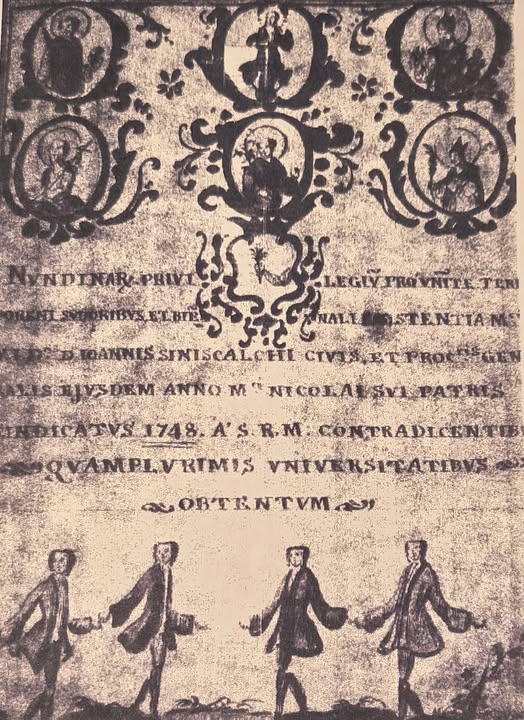 NUNDINAR. PRIVI LEGIŪ PRO UNĪTE TERI
PORENI SUDORIBUS, ET BIE NALI ASSISTENTIA Mˢ
D. IOANNIS SINISCALCHI CIVIS, ET PROCᴿᴵˢ GEN
ALIS EJUSDEM ANNO Mᶜⁱ NICOLAI SVI PATRIS
INDICATVS 1748. A' S. R. M. CONTRADICENTIB
QVAMPLVRIMIS VNIVERSITATIBVS
OBTENTVM